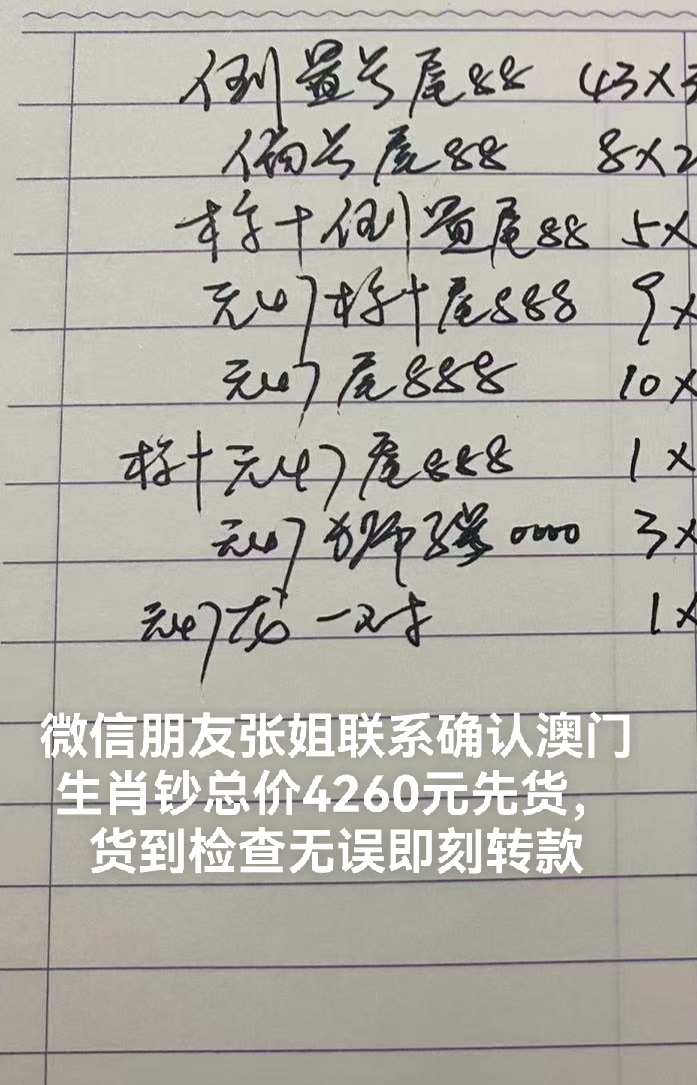 倒置号尾88 43×3
偏号尾88 8×2
标十倒置尾88 5×
无47标十尾888 9×
无47尾888 10×
标十无47尾888 1×
无47狮 0000 3×
无47龙一对 1×
微信朋友张姐联系确认澳门
生肖钞总价4260元先货，
货到检查无误即刻转款